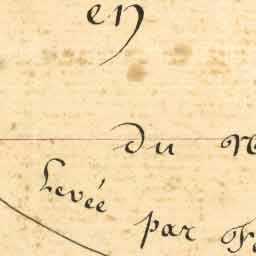 en
du
Levée
par